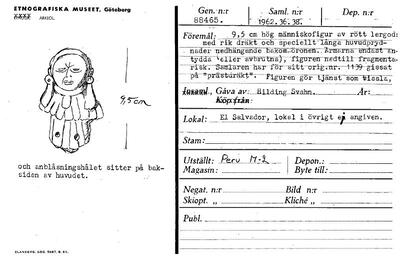 ETNOGRAFISKA MUSEET, Göteborg
XXXX ARKEOL.
9,5cm
och anblåsningshålet sitter på bak-
siden av huvudet.
ELANDERS, GBG 1967, B 51.
Gen. n:r
88465.
Saml. n:r
1962.36.38.
Dep. n:r
Föremål: 9,5 cm hög människofigur av rött lergods
med rik dräkt och speciellt långa huvudpryd-
nader nedhängande bakom öronen. Armarna endast an-
tydda (eller avbrutna), figuren nedtill fragmenta-
risk. Samlaren har för sitt orig.nr. 1139 gissat
på "prästdräkt". Figuren gör tjänst som vissla,
Insaml., Gåva av: Hilding Svahn. År:
Köpt från:
Lokal: El Salvador, lokal i övrigt ej angiven.
Stam:
Utställt: Peru M-2 Depon.:
Magasin: Byte till:
Negat. n:r Bild n:r
Skiopt. „ Kliché „
Publ.